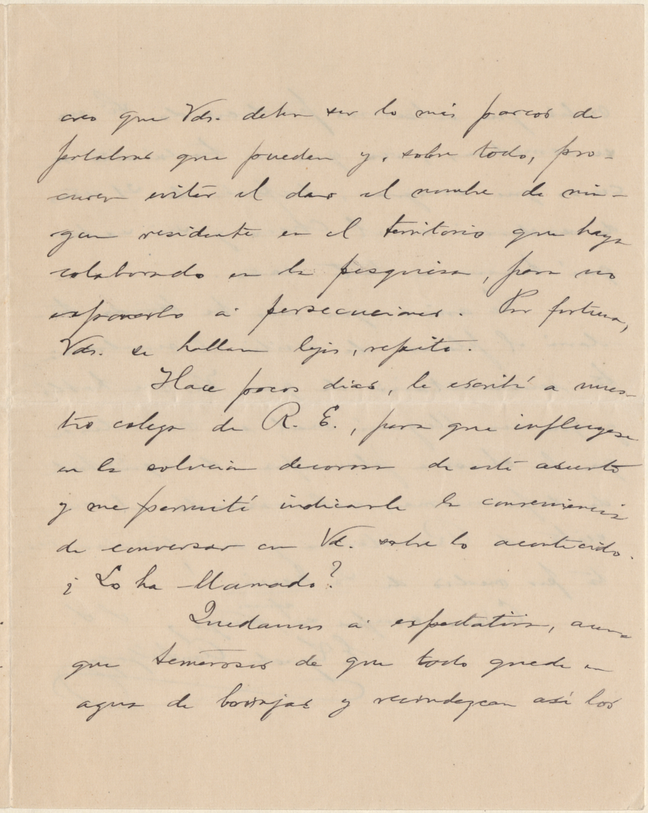 creo que Vds. deben ser lo más parcos de
palabras que pueden y, sobre todo, pro-
curen evitar el dar el nombre de nin-
gun residente en el territorio que haya
colaborado en la pesquisa, para no
exponerlo a persecuciones. Por fortuna,
Vds. se hallan lejos, repito.
Hace pocos dias, le escribí a nues-
tro colega de R. E., para que influyese
en la solución decorosa de este asunto
y me permití indicarle la conveniencia
de conversar con Vd. sobre lo acontecido.
¿Lo ha llamado?
Quedamos a expectativa, aun
que temerosos de que todo quede en
agua de borrajas y recrudezcan así los